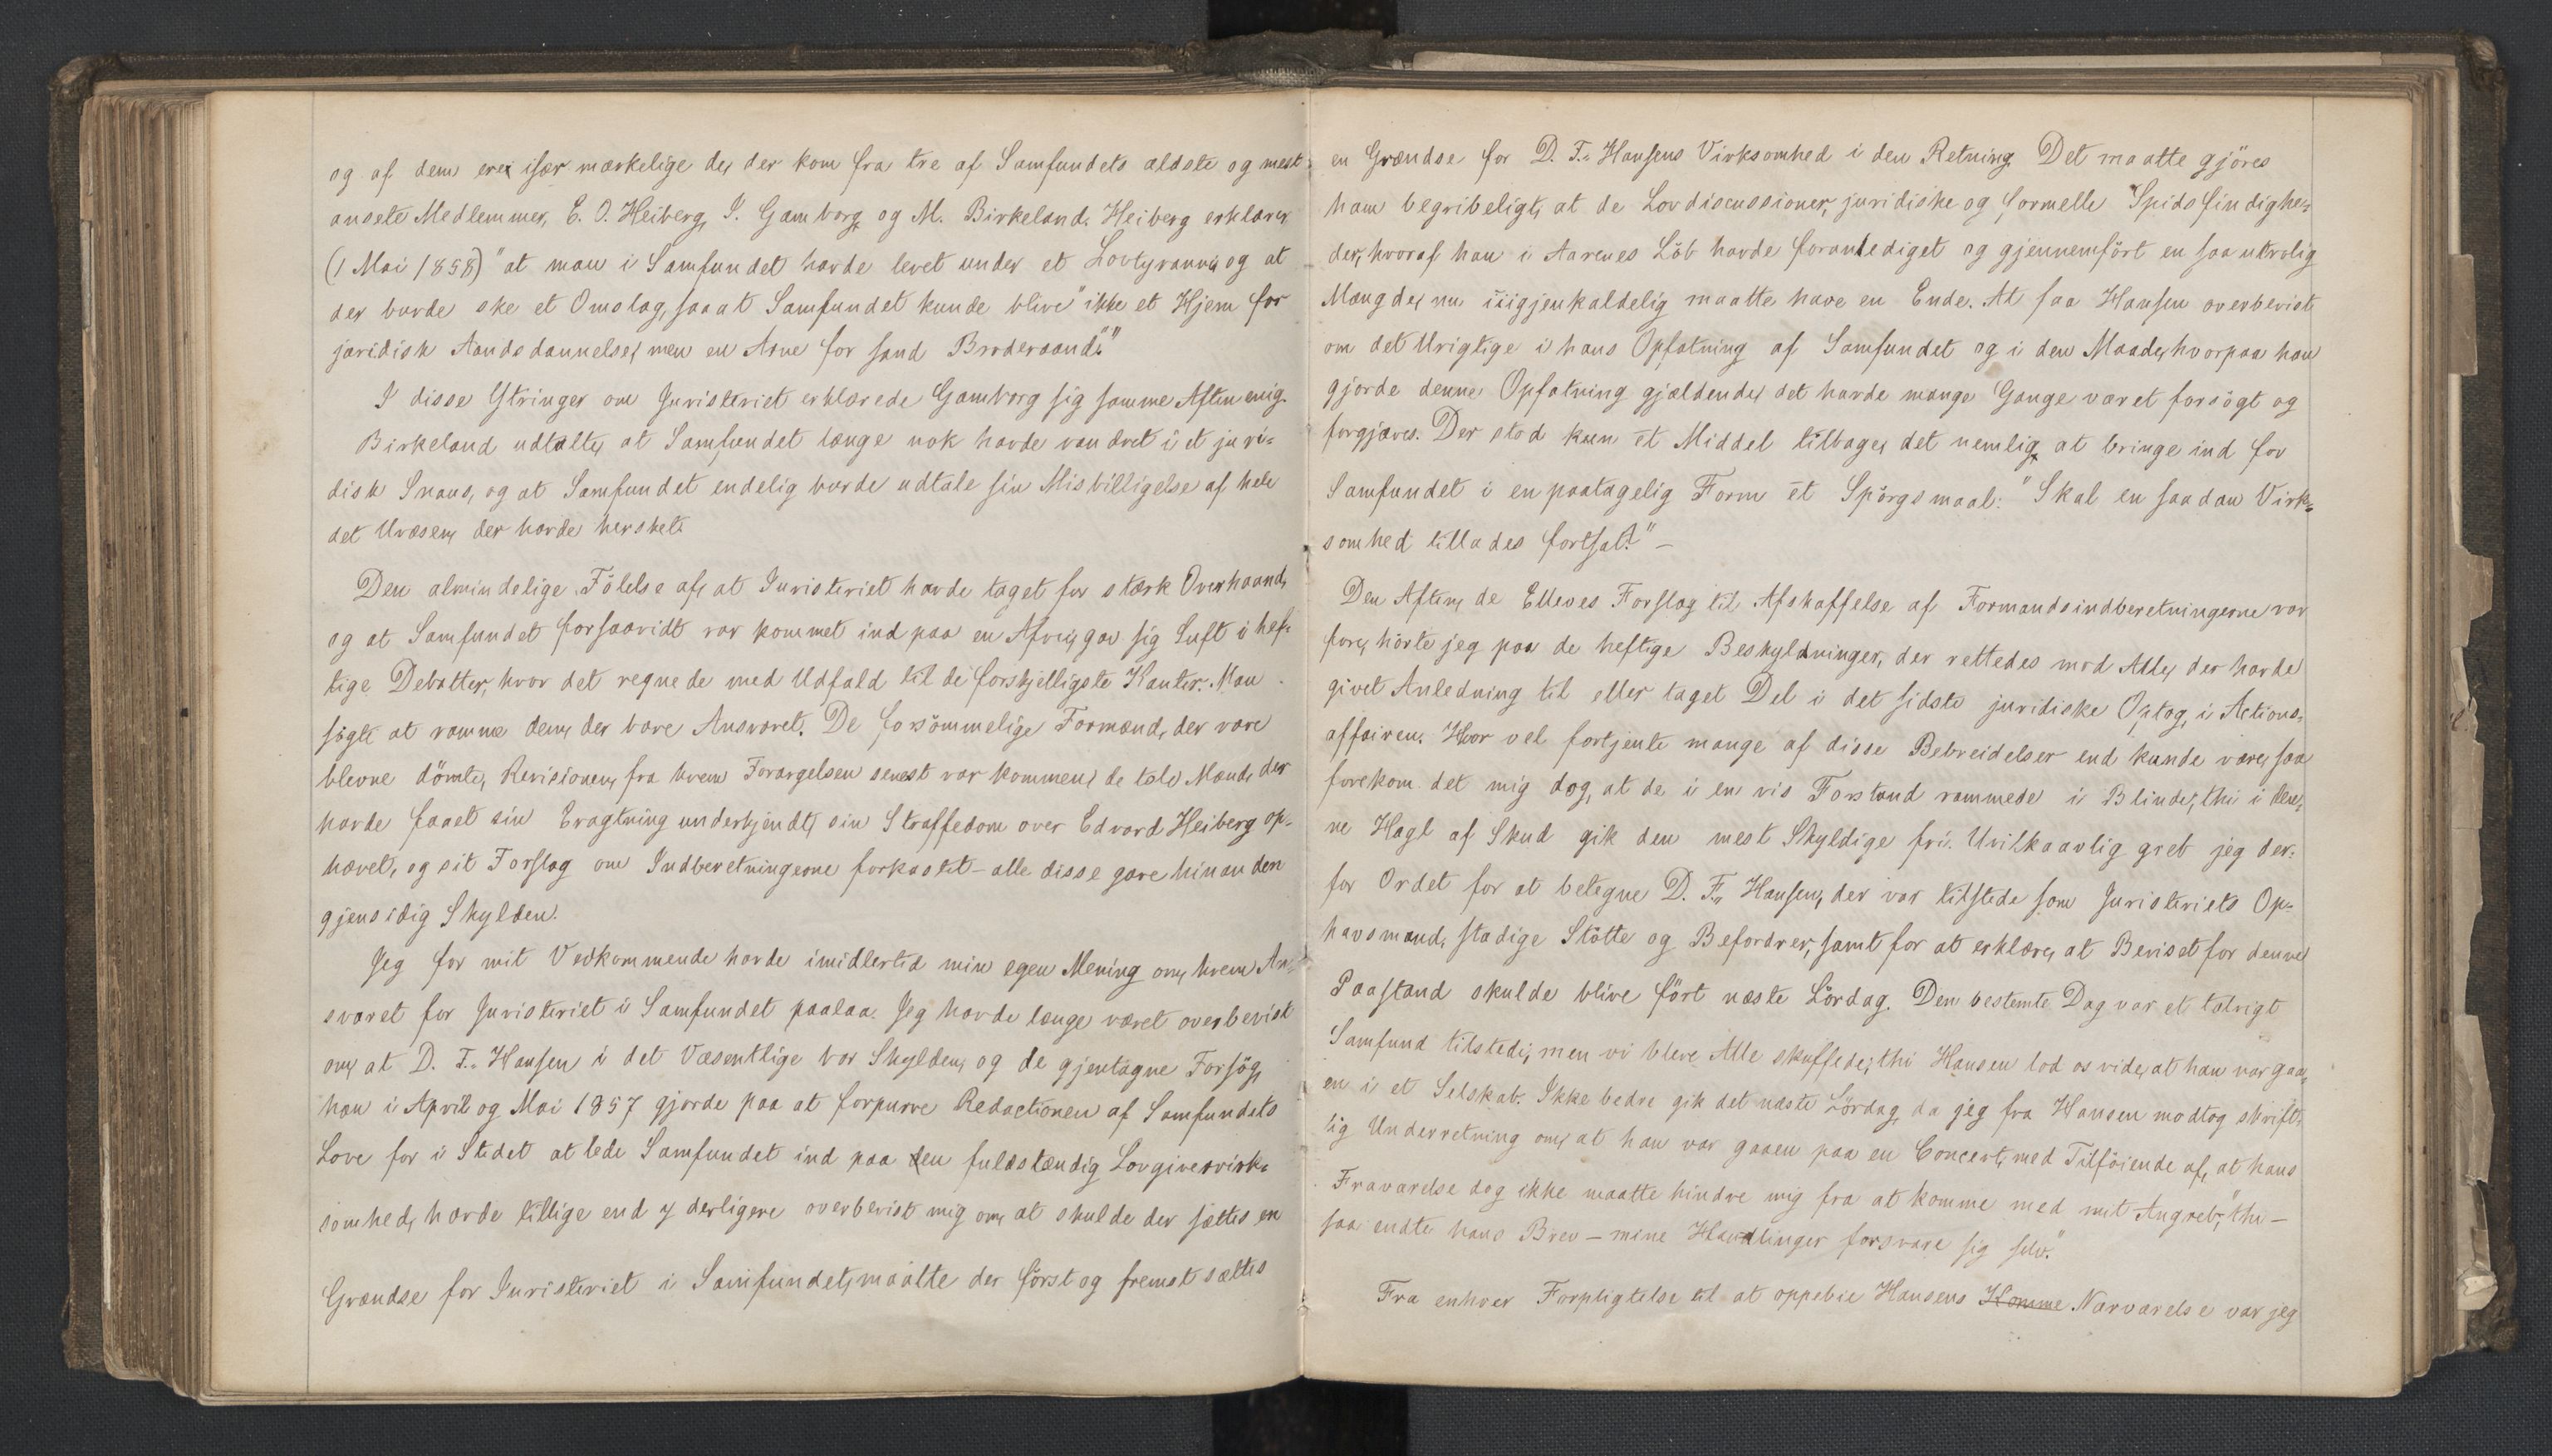 og af dem ere især mærkelige de, der kom fra tre af Samfundets ældste og mest
ansete Medlemmer, E. O. Heiberg, I. Gamborg og M. Birkeland. Heiberg erklærer
(1 Mai 1858) "at man i Samfundet havde levet under et Lovtyranni, og at
der burde ske et Omslag, saaat Samfundet kunde blive "ikke et Hjem for
juridisk Aandsdannelse, men en Arne for sand Broderaand"."
I disse Ytringer om Juristeriet erklærede Gamborg sig samme Aften enig.
Birkeland udtalte, at Samfundet længe nok havde vandret i et juri=
disk Snaus, og at Samfundet endelig burde udtale sin Misbilligelse af hele
det Uvæsen, der havde hersket.
Den almindelige Fölelse af, at Juristeriet havde taget for stærk Overhaand,
og at Samfundet forsaavidt var kommet ind paa en Afvei, gav sig Luft i hef=
tige Debatter, hvor det regnede med Udfald til de forskjelligste Kanter. Man
sögte at ramme dem, der bare Ansvaret. De forsömmelige Formænd, der vare
blevne dömte, Revisionen, fra hvem Forargelsen senest var kommen, de tolv Mænd, der
havde faaet sin Eragtning underkjendt, sin Straffedom over Edvard Heiberg op=
hævet, og sit Forslag om Indberetningerne forkastet - alle disse gave hinanden
gjensidig Skylden.
Jeg for mit Vedkommende havde imidlertid min egen Mening om, hvem An=
svaret for Juristeriet i Samfundet paalaa. Jeg havde længe været overbevist
om, at D. F. Hansen i det Væsentlige bar Skylden, og de gjentagne Forsög,
han i April og Mai 1857 gjorde paa at forpurre Redactionen af Samfundets
Love for i Stedet at lede Samfundet ind paa en fuldstændig Lovgivervirk=
somhed, havde tillige end yderligere overbevist mig om, at skulde der sættes en
Grændse for Juristeriet i Samfundet, maatte der först og fremst sættes
en Grændse for D. F. Hansens Virksomhed i den Retning. Det maatte gjöres
ham begribeligt, at de Lovdiscussioner, juridiske og formelle "Spidsfindighe=
der, hvoraf han i Aarenes Löb havde foranlediget og gjennemfört en saa utrolig
Mængde, nu uigjenkaldelig maatte have en Ende. At faa Hansen overbevist
om det Urigtige i hans Opfatning af Samfundet og i den Maade, hvorpaa han
gjorde denne Opfatning gjældende, det havde mange Gange været forsögt og
forgjæves. Der stod kun et Middel tilbage, det nemlig at bringe ind for
Samfundet i en paatagelig Form et Spörgsmaal: "Skal en saadan Virk=
somhed tillades fortsat?" -
Den Aften, de Elleves Forslag til Afskaffelse af Formandsindberetningerne var
fore, hörte jeg paa de heftige Beskyldninger, der rettedes mod Alle, der havde
givet Anledning til eller taget Del i det sidste juridiske Optog, i Actions=
affairen. Hor vel fortjente mange af disse Bebreidelser end kunde være, saa
forekom det mig dog, at de i en vis Forstand rammede i Blinde, thi i den=
ne Hagl af Skud gik den mest Skyldige fri. Uvilkaarlig greb jeg der=
for Ordet for at betegne D. F. Hansen, der var tilstede som Juristeriets Op=
havsmand, stadige Stötte og Befordrer, samt for at erklære, at Beviset for denne
Paastand skulde blive fört næste Lördag. Den bestemte Dag var et talrigt
Samfund tilstede; men vi bleve Alle skuffede; thi Hansen lod os vide, at han var gaa=
en i et Selskab. Ikke bedre gik det næste Lördag, da jeg fra Hansen modtog skrift=
lig Underretning om, at han var gaaen paa en Concert, med Tilföiende af, at hans
Fraværelse dog ikke maatte hindre mig fra at komme med mit Angreb; "thi -
saa endte hans Brev - mine Handlinger forsvare sig selv."
Fra enhver Forpligtelse til at oppebie Hansens Komme Nærværelse var jeg